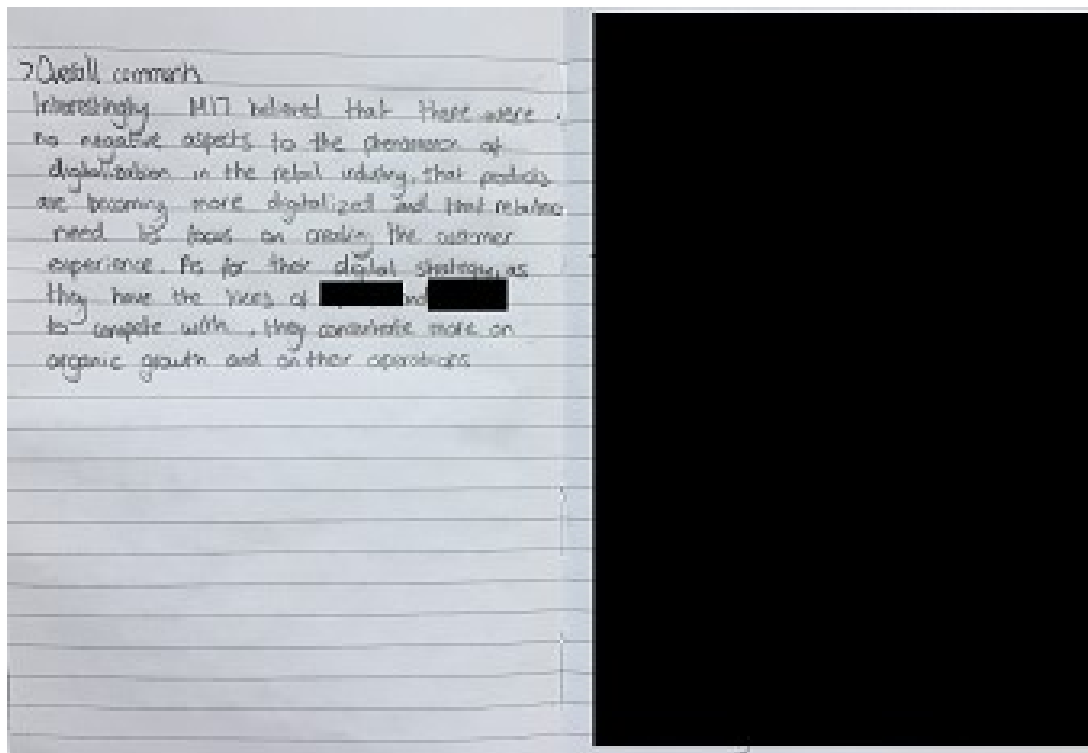 >Overall comments
Interestingly M17 believed that there were
no negative aspects to the phenomenon of
digitalization in the retail industry, that products
are becoming more digitalized and that retailers
need to focus on creating the customer
experience. As for their digital strategy, as
they have the likes of and
to compete with, they concentrate more on
organic growth and on their operations